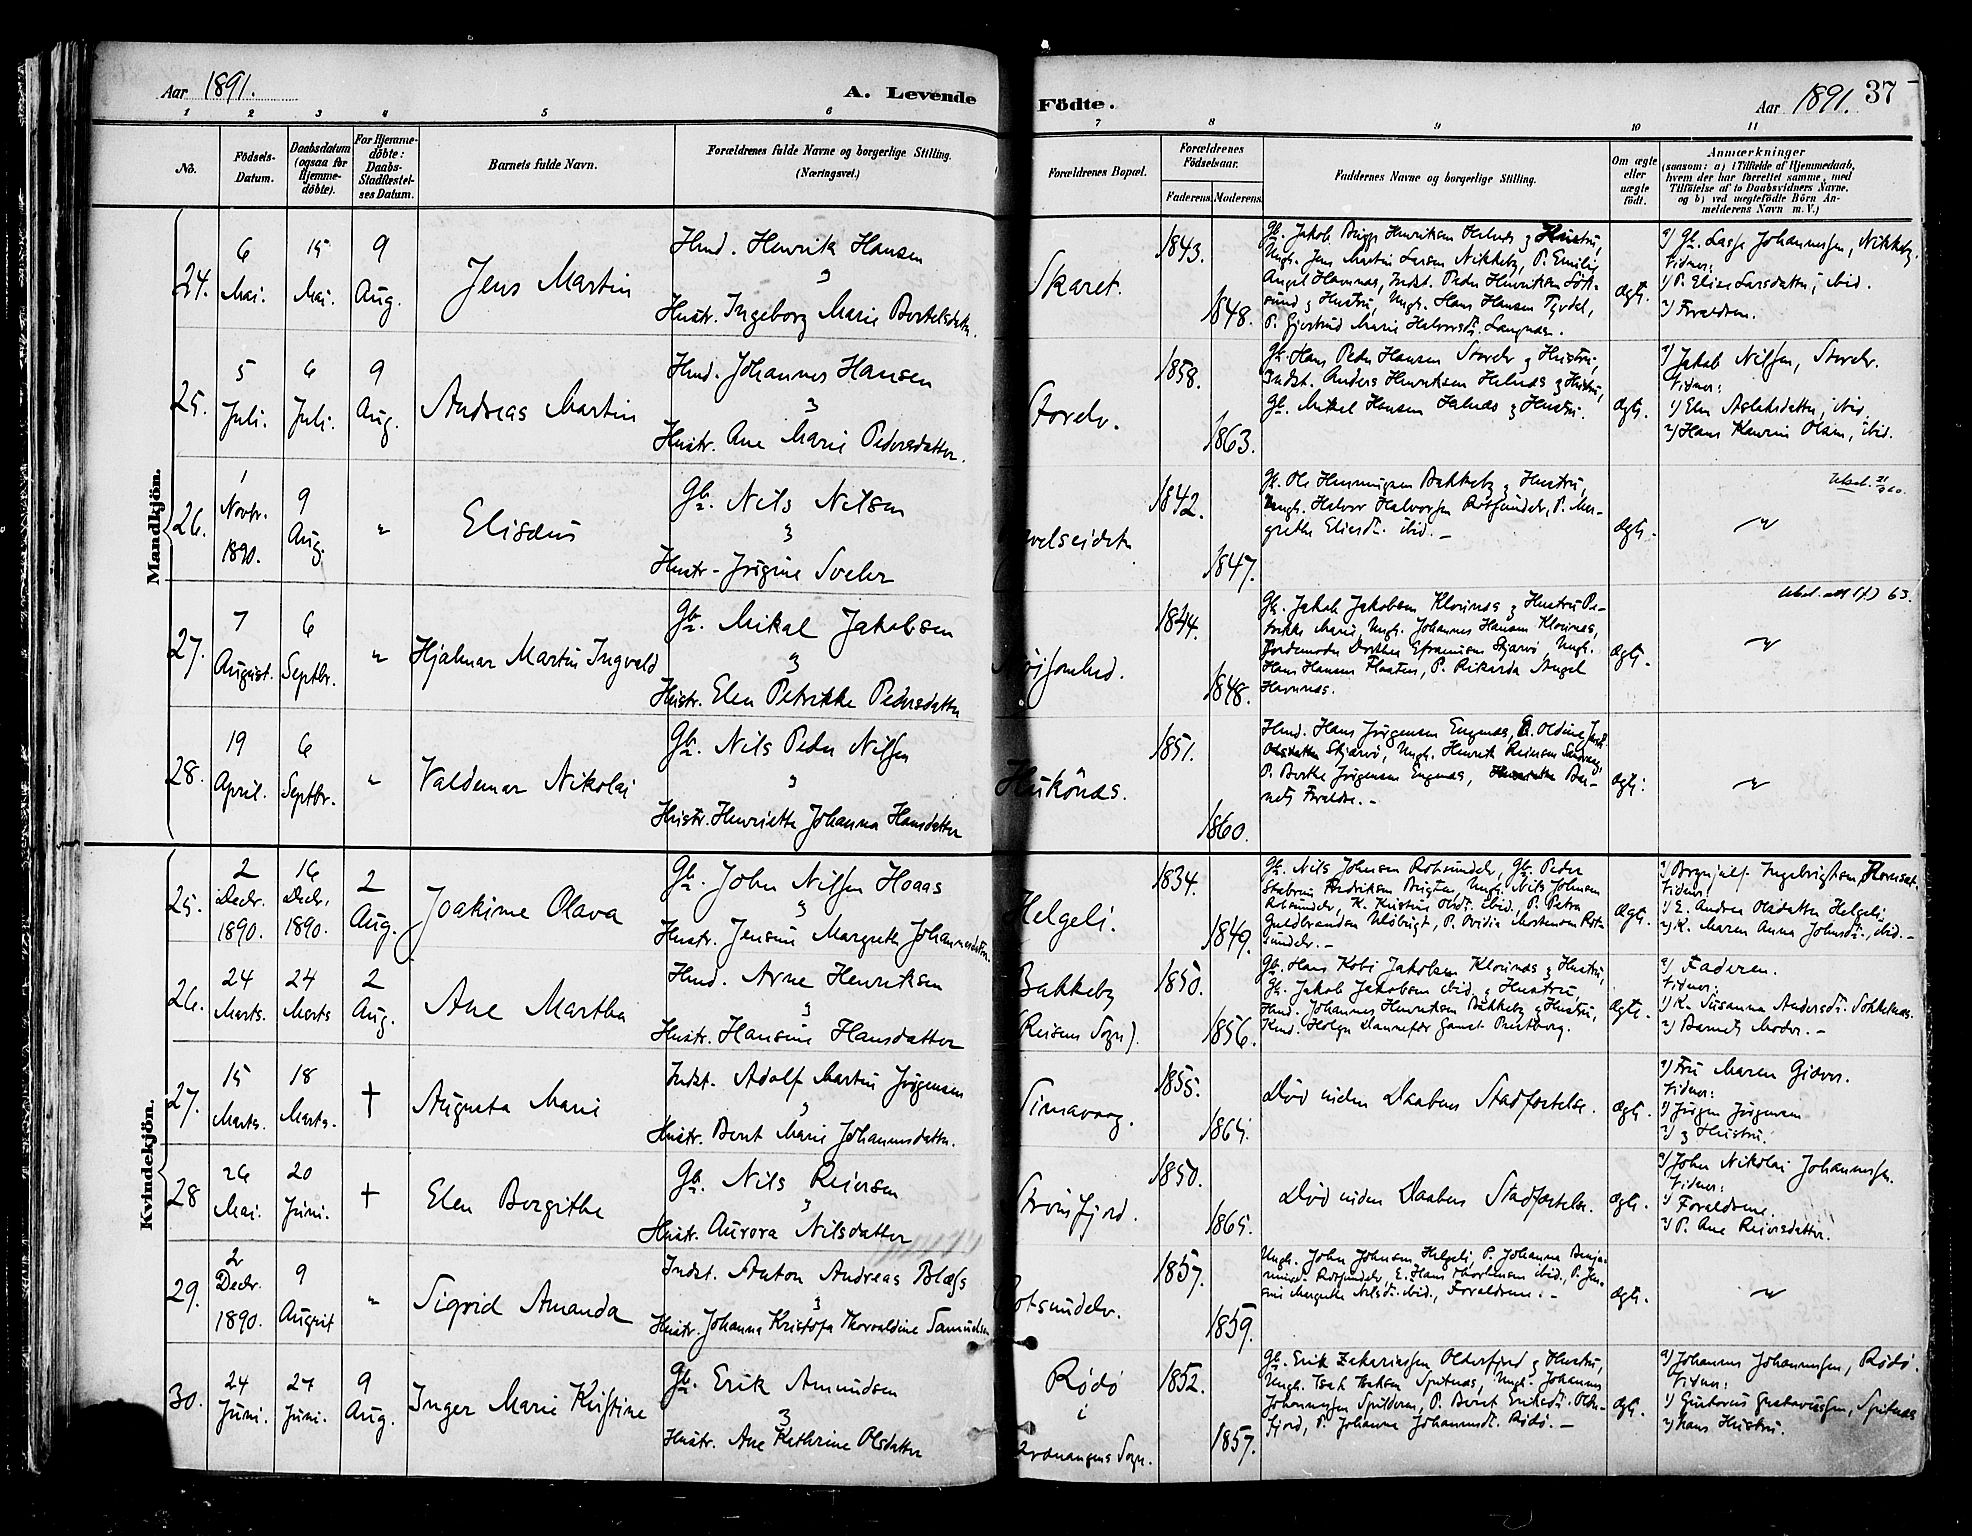 Aar 1891.
A. Levende
Födte.
Aar 1891.
37
1 2 3 4 5 6 7 8 9 10 11
No.
Födsels-
Datum.
Daabsdatum
(ogsaa for
Hjemme-
döbte).
For Hjemme-
döbte:
Daabs-
Stadfæstel-
ses Datum.
Barnets fulde Navn.
Forældrenes fulde Navne og borgerlige Stilling.
(Næringsvei.)
Forældrenes Bopæl.
Forældrenes
Födselsaar.
Faderens.
Moderens.
Faddernes Navne og borgerlige Stilling.
Om ægte
eller
uægte
födt.
Anmærkninger
(saasom: a) i Tilfælde af Hjemmedaab,
hvem der har forrettet samme, med
Tilföielse af to Daabsvidners Navne.
og b) ved uegtefödte Börn An-
melderens Navn m. V.)
Mandkjön.
24.
6
Mai.
15
Mai.
9
Aug.
Jens Martin
Hmd. Henrik Hansen
Hustr. Ingeborg Marie Bertelsdatter.
Skaret.
1843.
1848.
Gb. Jakob Henriksen Helnes & Hustru,
Ungk. Jens Martin Larsen Nikkeby, P. Emilie
Angel Havnnæs, Indst. Peder Henriksen
sund & Hustru, Ungk. Hans Hansen
P. Gjertrud Marie Halvorsd. Langnæs.
Ægte.
a) Gb. Lasse Johannessen, Nikkeby.
Vidner:
1) P. Elise Larsdatter, ibid.
2) Forældrene.
25.
5
Juli.
6
Juli.
9
Aug.
Andreas Martin
Hmd. Johannes Hansen
&
Hustr. Ane Marie Pedersdatter.
Storelv.
1858.
1863.
Gb. Hans Peder Hansen Storelv & Hustru,
Indst. Anders Henriksen Helnæs & Hustru,
Gb. Mikkel Hansen Helnæs & Hustru.
Ægte.
a) Jakob Nilsen, Storelv.
Vidner:
1) Elen Aslaksdatter, ibid.
2) Hans Olsen, ibid.
26.
1
Novbr.
1890.
9
Aug.
"
Elisæus
Gb. Nils Nilsen
&
Hustr. Jörgine
1842.
1847.
Gb. Ole Henningsen Bakkeby & Hustru,
Ungk. Halvor Halvorsen Rotsundelv, P. Mar-
grethe Eliesd. ibid.
Ægte.
27.
7
August.
6
Septbr.
"
Hjalmar Martin Ingvald
Gb. Mikal Jakobsen
&
Hustr. Elen Petrikke Pedersdatter
1844.
1848.
Gb. Jakob Jakobsen Klovnæs & Hustru Pe-
trikke Marie, Ungk. Johannes Hansen Klovnæs,
Jordemoder Dorthea Efraimsen Skjærvö, Ungk.
Hans Hansen Flaaten, P. Rikarda Angel
Havnnæs.
Ægte.
28.
19
April.
6
Septbr.
"
Valdemar Nikolai
Gb. Nils Peder Nilsen
&
Hustr. Henriette Johanna Hansdatter
Hukönæs.
1851.
1860.
Hmd. Hans Jörgensen Engenæs, P. Oldine
Skjærvö, Ungk. Henrik Reiersen
P. Berthe Jörgensen Engenæs, Bar-
nets Forældre.
Ægte.
Kvindekjön.
25.
2
Decbr.
1890.
16
Decbr.
1890.
2
Aug.
Joakime Olava
Gb. John Nilsen Hoaas
&
Hustr. Jensine Margrethe Johannesdatter.
Helgeli.
1834.
1849.
Gb. Nils Johnsen Rotsundelv, Gb. Peder
Fredriksen, Ungk. Nils Johnsen
Rotsundelv, K. Kristine Olsd. ibid., P. Petra
Guldbrandsen, P. Ovidia Mortensen Rot-
sundelv.
Ægte.
a) Brynjulf Ingebrigtsen
Vidner:
1) E. Andrea Olsdatter Helgeli,
2) K. Maren Anna Johnsd. ibid.
26.
24
Marts.
24
Marts
2
Aug.
Ane Martha
Hmd. Arne Henriksen
&
Hustr. Hansine Hansdatter
Bakkeby
(Reisens Sogn).
1850.
1856.
Gb. Hans Kobi Jakobsen Klovnæs & Hustru,
Gb. Jakob Jakobsen ibid. & Hustru,
Hmd. Johannes Henriksen Bakkeby & Hustru,
Hmd. Helge Dannefær
Ægte.
a) Faderen.
Vidner:
1) K. Susanna Andersd. Sokkelnæs.
2) Barnets Moder.
27.
15
Marts.
18
Marts.
†
Augusta Marie
Indst. Adolf Martin Jörgensen
&
Hustr. Berit Marie Johannesdatter.
1855.
1864.
Död inden Daabens Stadfæstelse.
Ægte.
a) Fru Maren Giæver.
Vidner:
1) Jörgen Jörgensen
2) & Hustru.
28
26
Mai.
20
Juni.
†
Elen Borgithe
Gb. Nils Reiersen
&
Hustr. Aurora Nilsdatter
Strömfjord.
1850.
1865.
Död inden Daabens Stadfæstelse.
Ægte.
a) John Nikolai Johannessen.
Vidner:
1) Forældrene.
2) P. Ane Reiersdatter.
29.
2
Decbr.
1890.
9
August
"
Sigrid Amanda
Indst. Anton Andreas Blæss
&
Hustr. Johanna Kristofa Thorvaldine Samuelsen
Rotsundelv.
1857.
1859.
Ungk. John Johnsen Helgeli, P. Johanna Benja-
minsd. Rotsundelv, E. Hans Mortensen ibid., P. Jen-
sine Margrethe Nilsd. ibid., Forældrene.
Ægte.
30.
24
Juni.
27
Juni.
9
Aug.
Inger Marie Kristine
Gb. Erik Amundsen
&
Hustr. Ane Kathrine Olsdatter
Rödö
i
Kvænangens Sogn.
1852.
1857.
Gb. Erik Zakariassen Olderfjord & Hustru,
Ungk. Isak Isaksen Spitnæs, Ungk. Johannes
Johannessen Spilderen, P. Berit Eriksd. Older-
fjord, P. Johanna Johannesd. Rödö.
Ægte.
a) Johannes Johannessen, Rödö.
Vidner:
1) Gustavus Gustavussen, Spitnæs
2) hans Hustru.